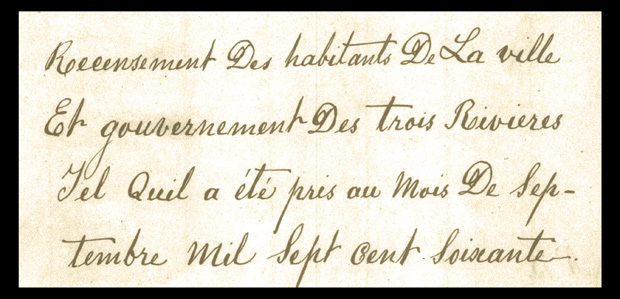 Recensement Des habitants De La ville
Et gouvernement Des trois Rivieres
Tel Quil a été pris au Mois De Sep-
tembre Mil Sept Cent Soixante.